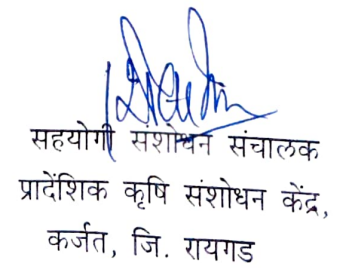 सहयोगी संशोधन संचालक
प्रादेशिक कृषि संशोधन केंद्र,
कर्जत, जि. रायगड